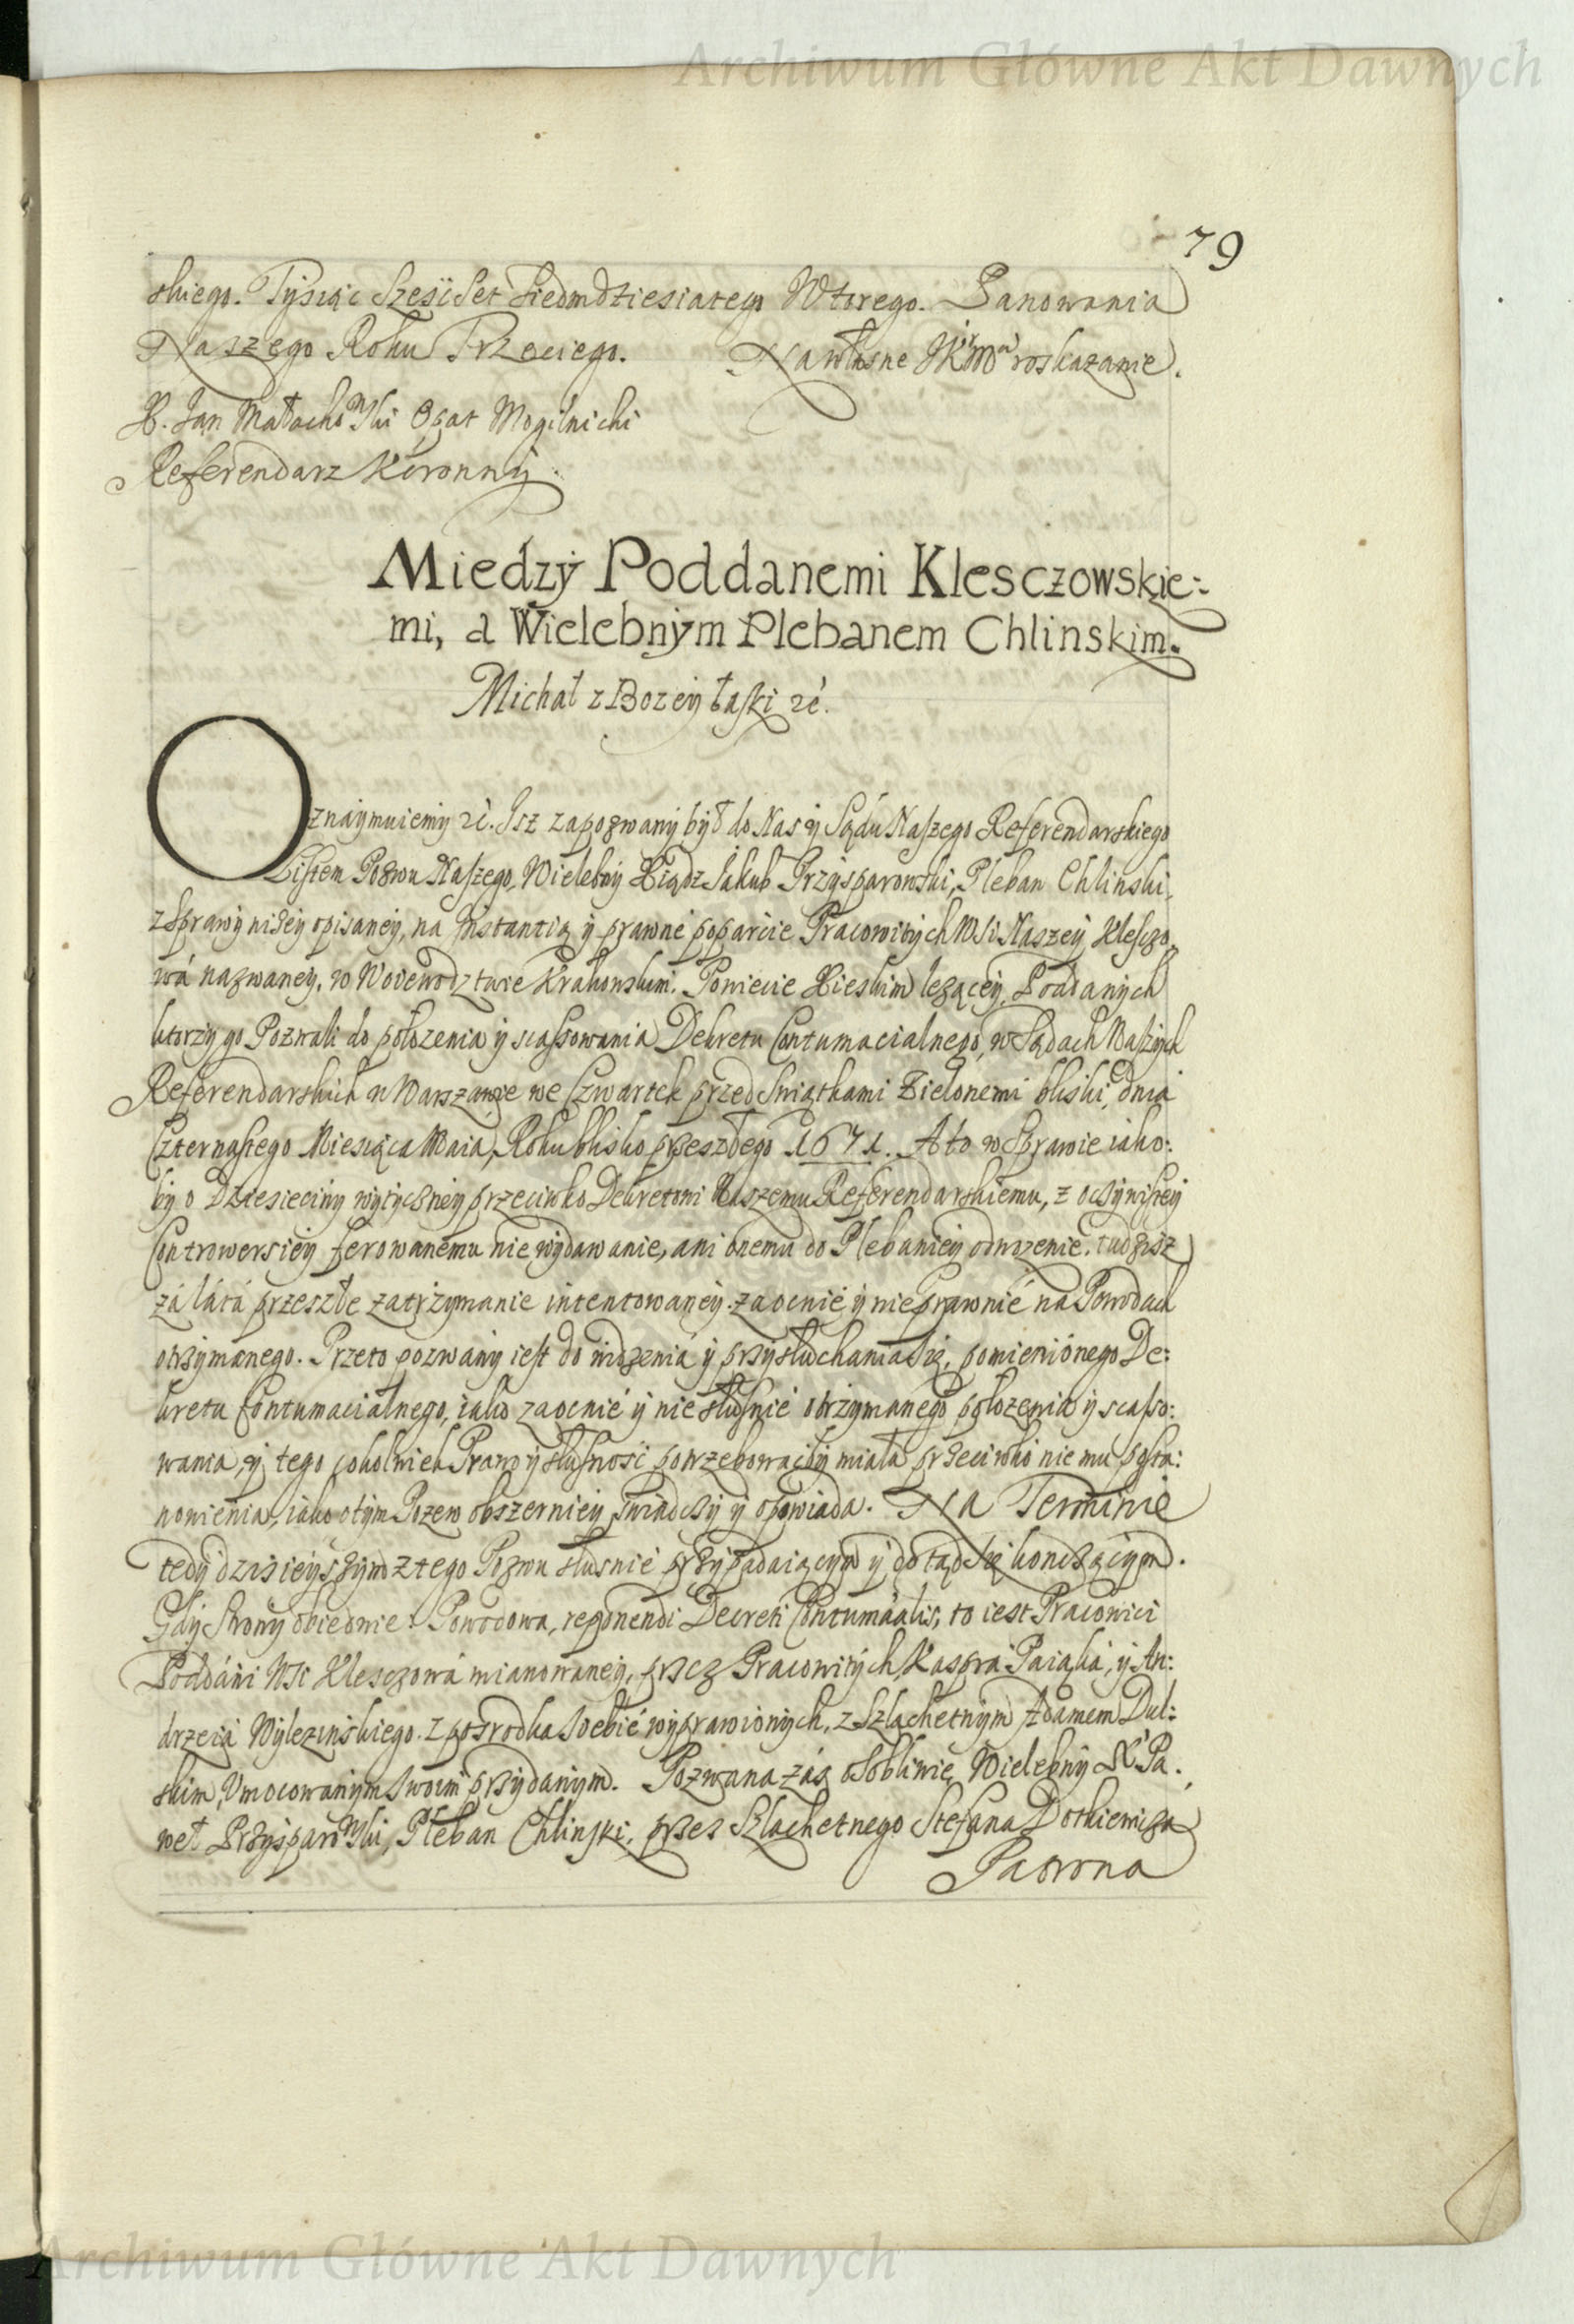 Archiwum Główne Akt Dawnych
79
skiego. Tysiąc Szesc Set Siedmdziesiatego Wtorego. Panowania
Naszego Roku Trzeciego. Na własne JKMći roskazanie.
X. Jan Małachowski Opat Mogilnicki
Referendarz Koronny.
Miedzÿ Poddanemi Klesczowskie:
mi, a Wielebnÿm Plebanem Chlinskim.
Michał z Bozey łaski zć.
Oznaÿmuiemÿ zć. Isz zapozwanÿ bÿł do Nas ÿ Sądu Naszego Referendarskiego
Listem Pozwu Naszego, Wielebnÿ Xiądz Jakub Przÿsparowski, Pleban Chlinski,
z Sprawÿ niżeÿ opisaneÿ, na Instantią ÿ prawne poparcie Pracowitÿch Wsi Naszeÿ Klesczo
wá nazwaneÿ, w Woiewodztwie Krakowskim. Powiecie Xieskim leżąceÿ, Poddanÿch
ktorzÿ go Pozwali do położenia ÿ scassowania Dekretu Contumacialnego, w Sądach Naszÿch
Referendarskich w Warszawie we Czwartek przed Swiątkami Zielonemi bliski, dnia
Czternastego Miesiąca Maia, Roku blisko przeszłego 1671. A to w Sprawie iako:
bÿ o Dziesiecinÿ wÿtÿczneÿ przeciwko Dekretowi Naszemu Referendarskiemu, z oczÿwisteÿ
Controwersieÿ ferowanemu nie wÿdawanie, ani onemu do Plebanieÿ odwozenie, tudzisz
zá látá przeszłe zatrzÿmanie intentowaneÿ. zaocnie ÿ nie prawnie na Powodach
otrzÿmanego. Przeto pozwanÿ iest do widzeniá ÿ przÿsłuchania Się, pomienionego De:
kretu Contumacialnego, iako zaocnie ÿ nie słusnie otrzÿmanego położenia ÿ scasso:
wania, ÿ tego cokolwiek Prawo ÿ słusnosc potrzebowaćbÿ miała przeciwko nie mu posta:
nowienia, iako otÿm Pozew obszernieÿ swiadczÿ ÿ opowiada. Na Terminie
tedÿ dzisieÿszÿm z tego Pozwu słusnie przÿpadaiącÿm ÿ dotąd się konczącÿm.
Gdÿ Stronÿ obiedwie. Powodowa, reponendi Decreti Contumacialis, to iest Pracowici
Poddáni Wsi Klesczowá mianowaneÿ, przez Pracowitÿch Kaspra Paiąka, ÿ An:
drzeia Wÿlezinskiego. z posrodka Siebie wÿprawionÿch, z Szlachetnÿm Adamem Dul:
skim, Umocowanÿm Swoim przÿdanÿm. Pozwana záś osobliwie Wielebnÿ X. Pa.
weł Przÿsparowski, Pleban Chlinski, przez Szlachetnego Stefana Dotkiewicza
Patrona
Archiwum Główne Akt Dawnych